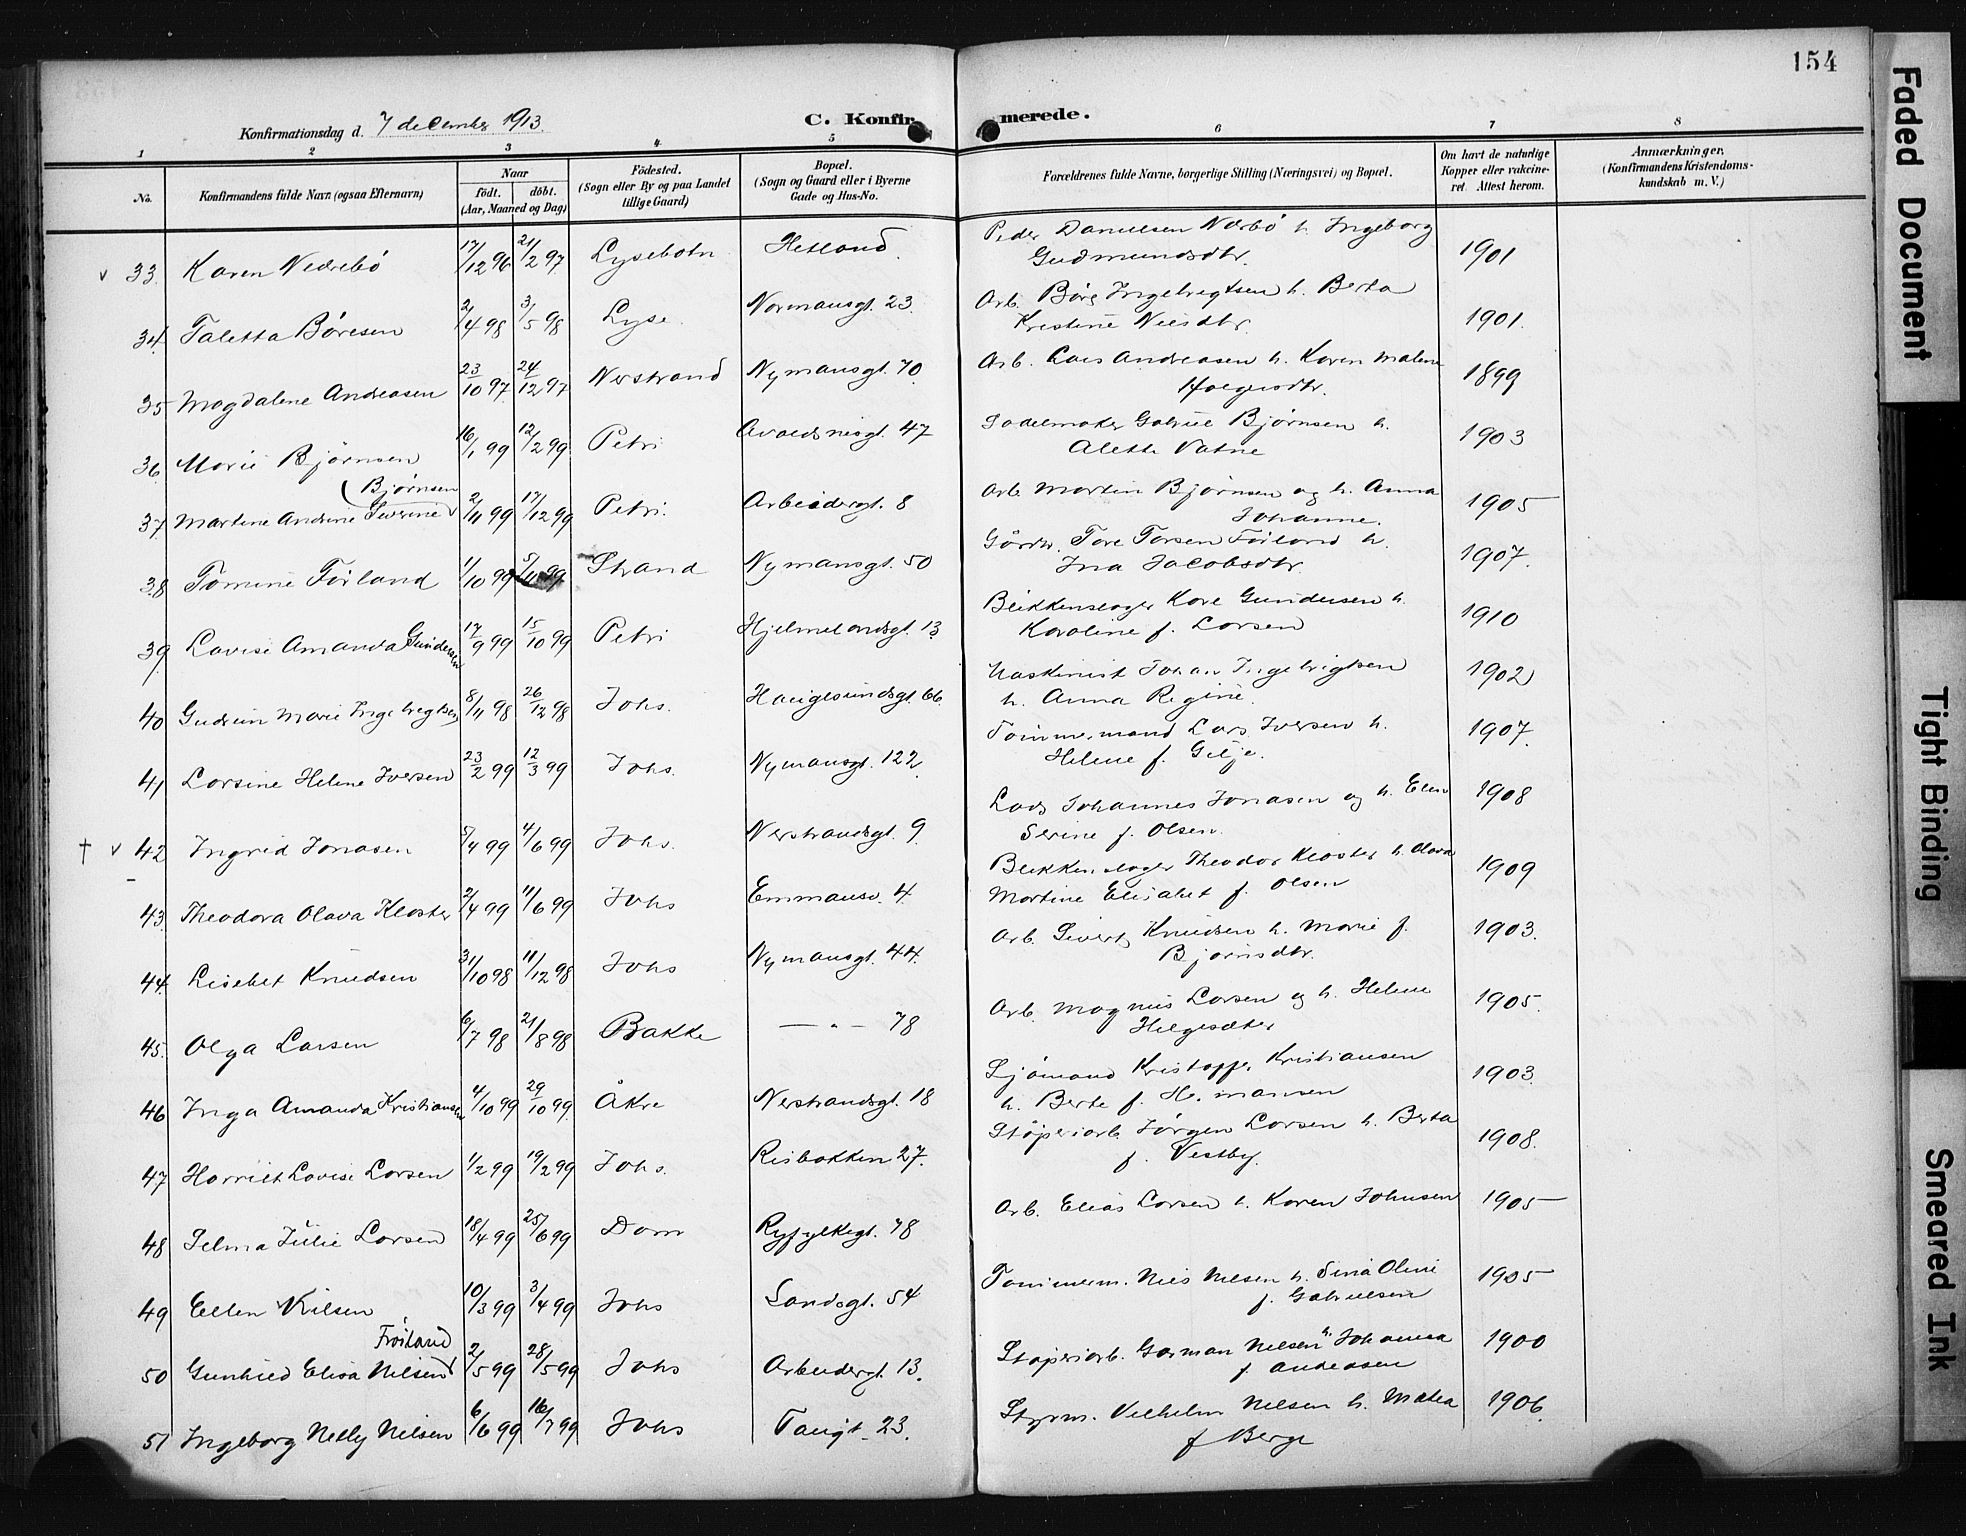 154
Konfirmationsdag d. 7 december 1913.
C. Konfirmerede.
1 2 3 4 5 6 7 8
No.
Konfirmandens fulde Navn (ogsaa Efternavn)
Naar
födt. döbt.
(Aar, Maaned og Dag)
Födested.
(Sogn eller By og paa Landet
tillige Gaard)
Bopæl.
(Sogn og Gaard eller i Byerne
Gade og Hus-No.
Forældrenes fulde Navne, borgerlige Stilling (Næringsvei) og Bopæl.
Om havt de naturlige
Kopper eller vakcine-
ret. Attest herom.
Anmærkninger.
(Konfirmandens Kristendoms-
kundskab m. V.)
v 33. Karen Nedrebö 17/12 96 21/2 97 Lysebotn Hetland Peder Danielsen Nærbö h. Ingeborg
Gudmundsdtr. 1901
34. Taletta Böresen 2/4 98 3/5 98 Lyse. Normansgt. 23. Arb. Börg Ingebrigtsen h. Berta
Kristine Nilsdtr. 1901.
35 Magdalene Andreasen 23/10 97. 24/12 97 Nerstrand Nymansgt. 70. Arb. Lars Andreasen h. Karen Malene
Holgersdtr. 1899
36. Marie Bjørnsen 16/1 99 12/2 99 Petri Avaldsnesgt. 47 Sadelmaker Gabriel Bjørnsen h.
Alette Vatne 1903
Bjørnsen
37. Martine Andrine Severine 2/11 99 17/12 99 Petri. Arbeidergt. 8 Arb. Martin Bjørnsen og h. Anna
Johanne. 1905
38 Tomine Förland 1/10 99 5/11 99 Strand Nymansgt. 50 Gårdbr. Tore Torsen Förland h.
Ina Jacobsdtr. 1907.
39. Lovise Amanda Gundersen 17/9 99 15/10 99 Petri Hjelmelandsgt. 13 Blikkenslager Kare Gundersen h.
Karoline f. Larsen 1910
40 Gudrun Marie Ingebrigtsen 8/11 98 26/12 98 Johs. Haugesundsgt. 66. Maskinist Johan Ingebrigtsen
h. Anna Regine. 1902
41 Larsine Helene Iversen 23/2 99 12/3 99 Johs. Nymansgt. 122. Tömmermand Lars Iversen h.
Helene f. Gilje. 1907.
† v 42 Ingrid Jonasen 5/4 99 4/6 99 Johs. Nerstrandsgt. 9. Lods Johannes Jonasen og h. Elen
Serine f. Olsen. 1908
43. Theodora Olava Kloster 2/4 99 11/6 99 Johs Emmausv. 4 Blikkenslager Theodor Kloster h. Olava
Martine Elisabet f. Olsen 1909
44. Lisebet Knudsen 31/10 98 11/12 98 Johs Nymansgt. 44. Arb. Sivert Knudsen h. Marie f.
Bjørnsdtr. 1903.
45. Olga Larsen 6/7 98 21/8 98 Bakke — „ — 78 Arb. Magnus Larsen og h. Helene
Helgesæter 1905.
46 Inga Amanda Kristiansen 4/10 99 29/10 99. Åkre Nerstrandsgt. 18 Sjömand Kristoffer Kristiansen
h. Berte f. Hermansen 1903.
47 Harriet Lovise Larsen 1/2 99 19/2 99 Johs. Risbakken 27. Stöperiarb. Jörgen Larsen h. Berta
f. Vestby. 1908.
48 Selma Julie Larsen 18/4 99 25/6 99 Dom Ryfylkegt. 78 Arb. Elias Larsen h. Karen Johnsen 1905
49 Ellen Nilsen 10/3 99 3/4 99 Johs Sandsgt. 54 Tömmerm. Nils Nilsen h. Sina Oline
f. Gabrielsen 1905
Fröiland
50 Gunhild Elisa Nilsen 2/5 99 28/5 99 Johs Arbeidergt. 13. Stöperiarb. Garman Nilsen h. Johanna
f. Andreasen 1900
51 Ingeborg Nelly Nilsen 6/6 99 16/7 99 Johs Taugt. 23. Styrm. Vilhelm Nilsen h. Matea
f Berge 1906.
Faded Document
Tight Binding
Smeared Ink